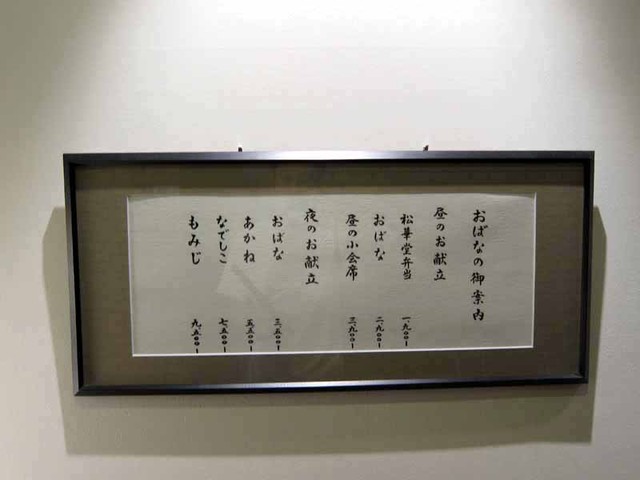 おばなの御案内
昼のお献立
松華堂弁当 一、九〇〇ー
おばな 二、九〇〇ー
昼の小会席 三、九〇〇ー
夜のお献立
おばな 三、五〇〇ー
あかね 五、五〇〇ー
なでしこ 七、五〇〇ー
もみじ 九、五〇〇ー